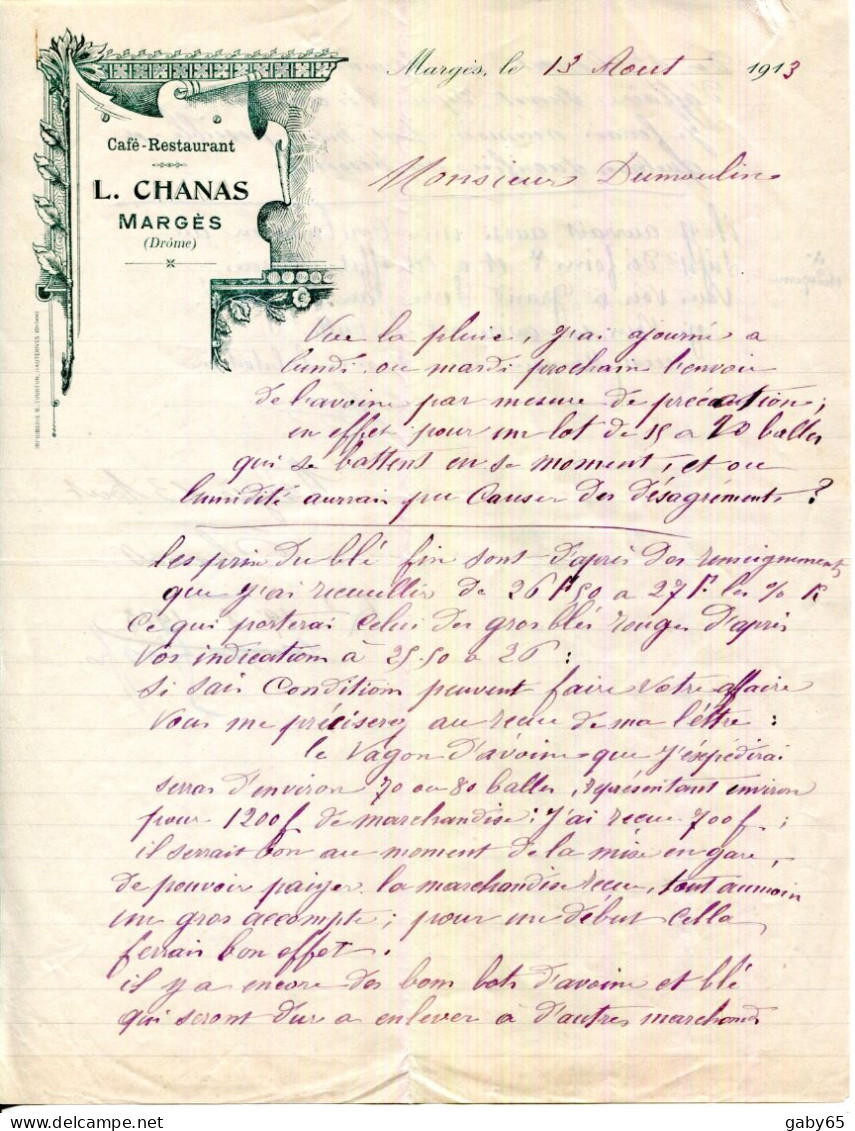 Café-Restaurant
L. CHANAS
MARGÈS
(Drôme)
Margès, le 13 Aout 1913
Monsieur Dumoulin
Vue la pluie, j'ai ajourné a
lundi ou mardi prochain l'envoie
de l'avoine par mesure de précaution;
en effet pour un lot de 15 a 20 balles
qui se battent en se moment, et ou
lumidité aurrai pu causer des désagréments ?
les prix du blé fin sont d'après des renseignements
que j'ai recueillir de 26 F 50 a 27 F. les % K
ce qui porterai celui des gros blés rouges d'après
vos indications à 25.50 a 26 :
si sais conditions peuvent faire votre affaire
vous me préciserez au recue de ma lêttre :
le vagon d'avoine que j'éxpédirai
serras d'environ 70 ou 80 balles, représentant environ
pour 1200 f de marchandise; j'ai recue 700 f ;
il serrait bon au moment de la mise en gare,
de pouvoir paiyer la marchandise recue, tout aumoin
un gros accompte; pour un début cella
ferrais bon effet.
il y a encore des bons lots d'avoine et blé
qui seront dur a enlever à d'autres marchands
delcampe.net
gaby65